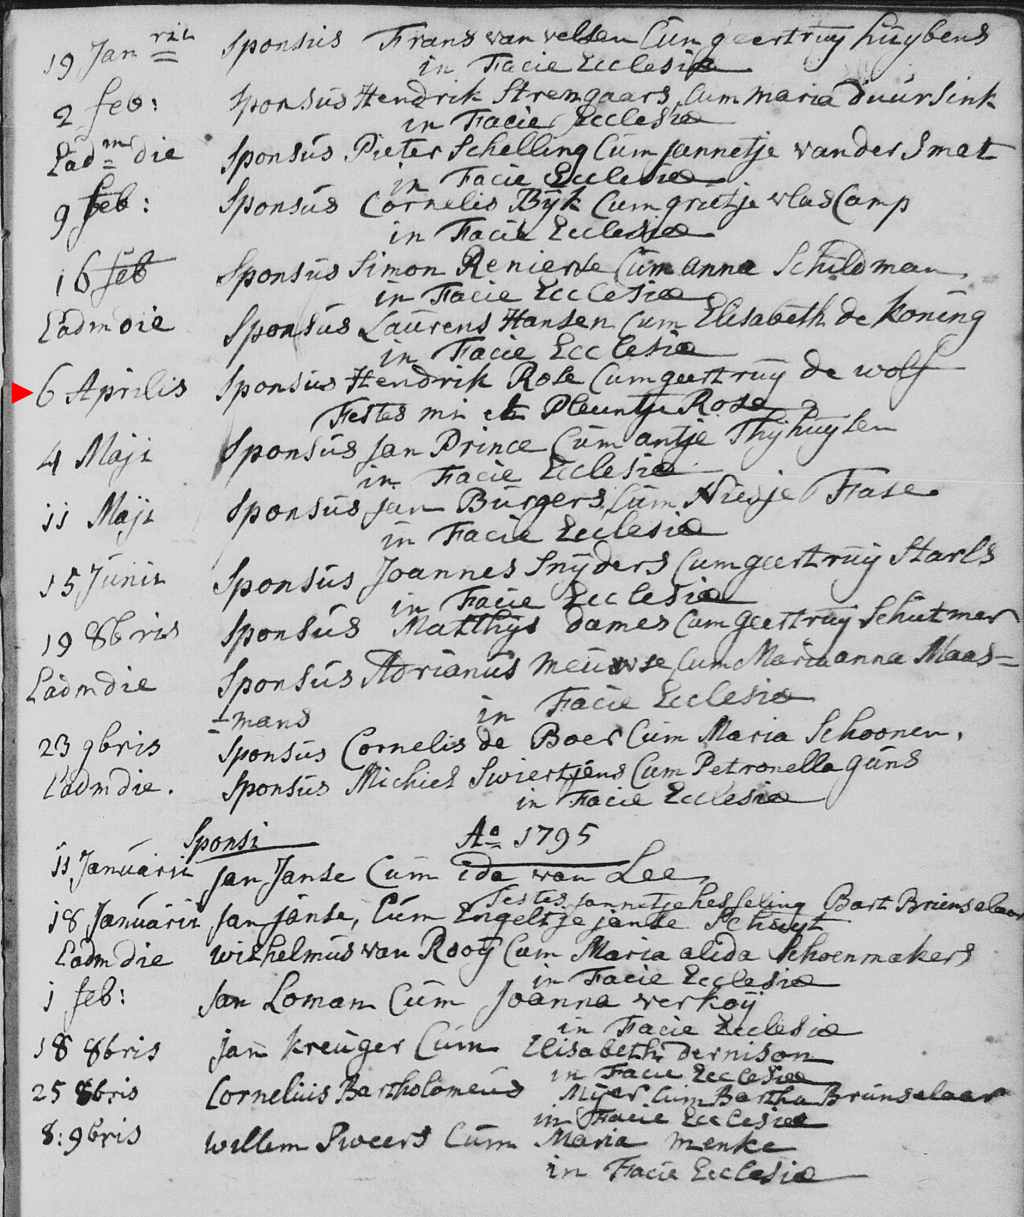 19 Jan rii Sponsus Frans van velsen Cum geertruy huybens
in Facie Ecclesiæ
2 feb: Sponsus Hendrik Strengaars Cum maria duursink
in Facie Ecclesiæ
Eadm die Sponsus Pieter Schelling Cum jannetje vander Smat
in Facie Ecclesiæ
9 feb: Sponsus Cornelis Bijk Cum grietje vlasCamp
in Facie Ecclesiæ
16 feb Sponsus Simon Renierse Cum anna Schildman
in Facie Ecclesiæ
Eadm die Sponsus Laurens Hansen Cum Elisabeth de koning
in Facie Ecclesiæ
6 Aprilis Sponsus Hendrik Rose Cum geertruij de wolf
Testes mr et Pleuntje Rose
4 Maji Sponsus Jan Prince Cum antje Thijhuysen
in Facie Ecclesiæ
11 Maji Sponsus Jan Burgers Cum Niesje Fase
in Facie Ecclesiæ
15 Junii Sponsus Joannes Snyders Cum geertruij Starls
in Facie Ecclesiæ
19 8bris Sponsus Matthijs dames Cum geertruy Schutmer
Eadm die Sponsus Adrianus meuwse Cum Maria anna Maas=
=mans in Facie Ecclesiæ
23 9bris Sponsus Cornelis de Boer Cum Maria Schoonen.
Eadm die. Sponsus Michiel Swiertjens Cum Petronella guns
in Facie Ecclesiæ
Sponsi Ao 1795
11 Januarii Jan Janse Cum ida van Lee
Testes jannetje hesseling Bart Brunselaar
18 Januarii Jan janse, Cum Engeltje janse Schuyt
Eadm die wilhelmus van Rooy Cum Maria alida Schoenmakers
in Facie Ecclesiæ
1 feb: Jan Loman Cum Joanna verkoij
in Facie Ecclesiæ
18 8bris Jan kreuger Cum Elisabeth dernison
in Facie Ecclesiæ
25 8bris Cornelius Bartholomeus Mijer Cum Bartha Brunselaar
in Facie Ecclesiæ
8: 9bris willem Sweers Cum Maria menke
in Facie Ecclesiæ